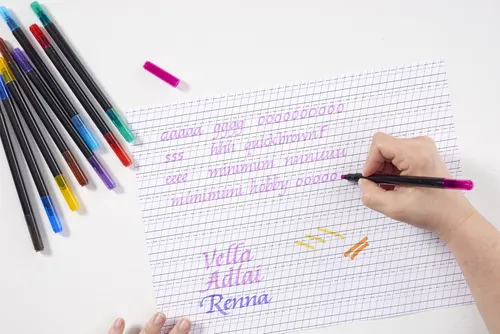 aaaaa aggg oooooooooo
sss hhii quickbrownf
eeee minimum
mimimimi hobby ooooo
Vella
Adlai
Renna